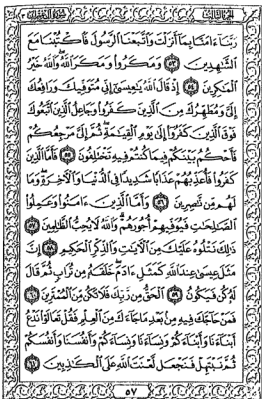 الجزء الثالث سورة آل عمران ٣
رَبَّنَا ءَامَنَّا بِمَا أَنزَلْتَ وَاتَّبَعْنَا الرَّسُولَ فَاكْتُبْنَا مَعَ
الشَّٰهِدِينَ ٥٣ وَمَكَرُوا وَمَكَرَ اللَّهُ وَاللَّهُ خَيْرُ
الْمَٰكِرِينَ ٥٤ إِذْ قَالَ اللَّهُ يَٰعِيسَىٰ إِنِّي مُتَوَفِّيكَ وَرَافِعُكَ
إِلَيَّ وَمُطَهِّرُكَ مِنَ الَّذِينَ كَفَرُوا وَجَاعِلُ الَّذِينَ اتَّبَعُوكَ
فَوْقَ الَّذِينَ كَفَرُوا إِلَىٰ يَوْمِ الْقِيَٰمَةِ ثُمَّ إِلَيَّ مَرْجِعُكُمْ
فَأَحْكُمُ بَيْنَكُمْ فِيمَا كُنتُمْ فِيهِ تَخْتَلِفُونَ ٥٥ فَأَمَّا الَّذِينَ
كَفَرُوا فَأُعَذِّبُهُمْ عَذَابًا شَدِيدًا فِي الدُّنْيَا وَالْءَاخِرَةِ وَمَا
لَهُم مِّن نَّٰصِرِينَ ٥٦ وَأَمَّا الَّذِينَ ءَامَنُوا وَعَمِلُوا
الصَّٰلِحَٰتِ فَيُوَفِّيهِمْ أُجُورَهُمْ وَاللَّهُ لَا يُحِبُّ الظَّٰلِمِينَ ٥٧
ذَٰلِكَ نَتْلُوهُ عَلَيْكَ مِنَ الْءَايَٰتِ وَالذِّكْرِ الْحَكِيمِ ٥٨ إِنَّ
مَثَلَ عِيسَىٰ عِندَ اللَّهِ كَمَثَلِ ءَادَمَ خَلَقَهُ مِن تُرَابٍ ثُمَّ قَالَ
لَهُ كُن فَيَكُونُ ٥٩ الْحَقُّ مِن رَّبِّكَ فَلَا تَكُن مِّنَ الْمُمْتَرِينَ ٦٠
فَمَنْ حَاجَّكَ فِيهِ مِن بَعْدِ مَا جَاءَكَ مِنَ الْعِلْمِ فَقُلْ تَعَالَوْا نَدْعُ
أَبْنَاءَنَا وَأَبْنَاءَكُمْ وَنِسَاءَنَا وَنِسَاءَكُمْ وَأَنفُسَنَا وَأَنفُسَكُمْ
ثُمَّ نَبْتَهِلْ فَنَجْعَل لَّعْنَتَ اللَّهِ عَلَى الْكَٰذِبِينَ ٦١
٥٧